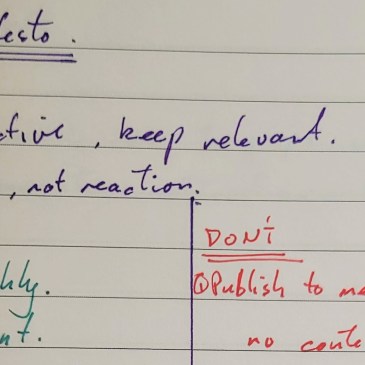 festo.
ctive, keep relevant.
, not reaction.
DON'T
hly.
① Publish to me
nt.
no conte